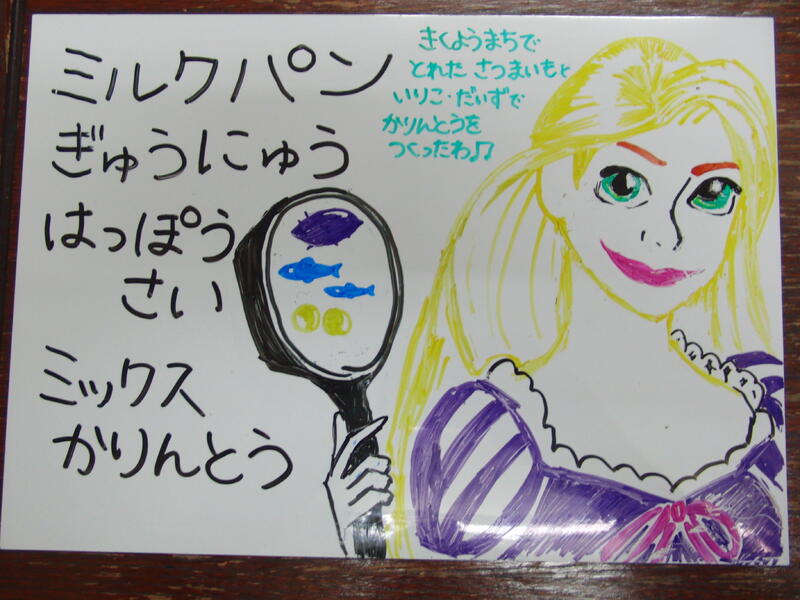 ミルクパン
ぎゅうにゅう
はっぽう
さい
ミックス
かりんとう
きくようまちで
とれた さつまいもと
いりこ・だいずで
かりんとうを
つくったわ♪♫